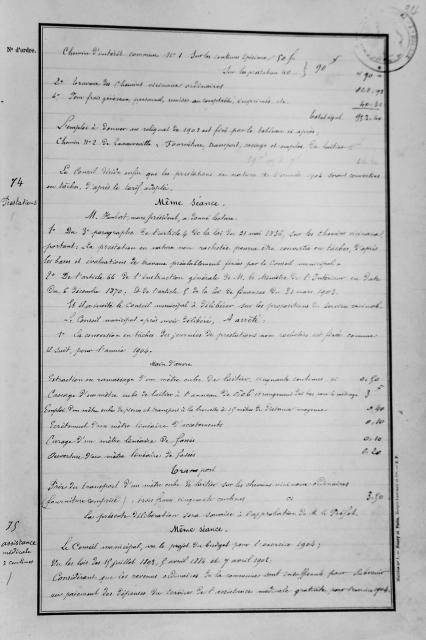 N° d'ordre.
Chemin d'intérêt commun N° 1 Sur les centimes spéciaux 50 f
Sur les prestations 40 } 90 f
" 90 "
2° Travaux des chemins vicinaux ordinaires
4° Pour frais généraux, personnel, remises au comptable, imprimés, etc. 40.
Total égal
L'emploi à donner au reliquat de 1902 est fixé par le tableau ci après.
Chemin N° 2 de Fourniture, transport, cassage et emploi de
Le Conseil décide enfin que les prestations en nature de l'année 1904 seront converties
en tâches, d'après le tarif adopté.
74
Prestations
Même séance.
M. maire président, a donné lecture.
1° Du 3e paragraphe de l'article 4 de la loi du 21 mai 1836, sur les chemins vicinaux,
portant : La prestation en nature non rachetée pourra être convertie en tâches, d'après
les bases et évaluations de travaux préalablement fixées par le Conseil municipal.
2° De l'article 66 de l'instruction générale de M. le Ministre de l'Intérieur en date
du 6 décembre 1870, et de l'article 5 de la loi de finances du 31 mars 1903.
Et il a invité le Conseil municipal à délibérer sur les propositions du service vicinal.
Le Conseil municipal après avoir délibéré, A arrêté :
1° La conversion en tâches des journées de prestations non rachetées est fixée comme
il suit, pour l'année 1904.
Main d'œuvre
Extraction ou ramassage d'un mètre cube de cinquante centimes ci 0.50
Cassage d'un mètre cube de à l'anneau de 0m06 et rangement des tas avec le métrage 3 "
Emploi d'un mètre cube de pierres et transport à la brouette à 15 mètres de distance moyenne 0.40
d'un mètre linéaire d'accotements 0.10
Curage d'un mètre linéaire de fossés 0.10
Ouverture d'un mètre linéaire de fossés 0.20
Transport
Prix du transport d'un mètre cube de sur les chemins vicinaux ordinaires
(fourniture comprise) trois francs cinquante centimes ci 3.50
La présente délibération sera soumise à l'approbation de M. le Préfet.
75
assistance
médicale
2 centimes
Même séance.
Le Conseil municipal, vu le projet du budget pour l'exercice 1904;
Vu les lois des 15 juillet 1893, 5 avril 1884 et 7 avril 1902;
Considérant que les revenus ordinaires de la commune sont insuffisants pour subvenir
au paiement des dépenses du service de l'assistance médicale gratuite pour l'année 1904.